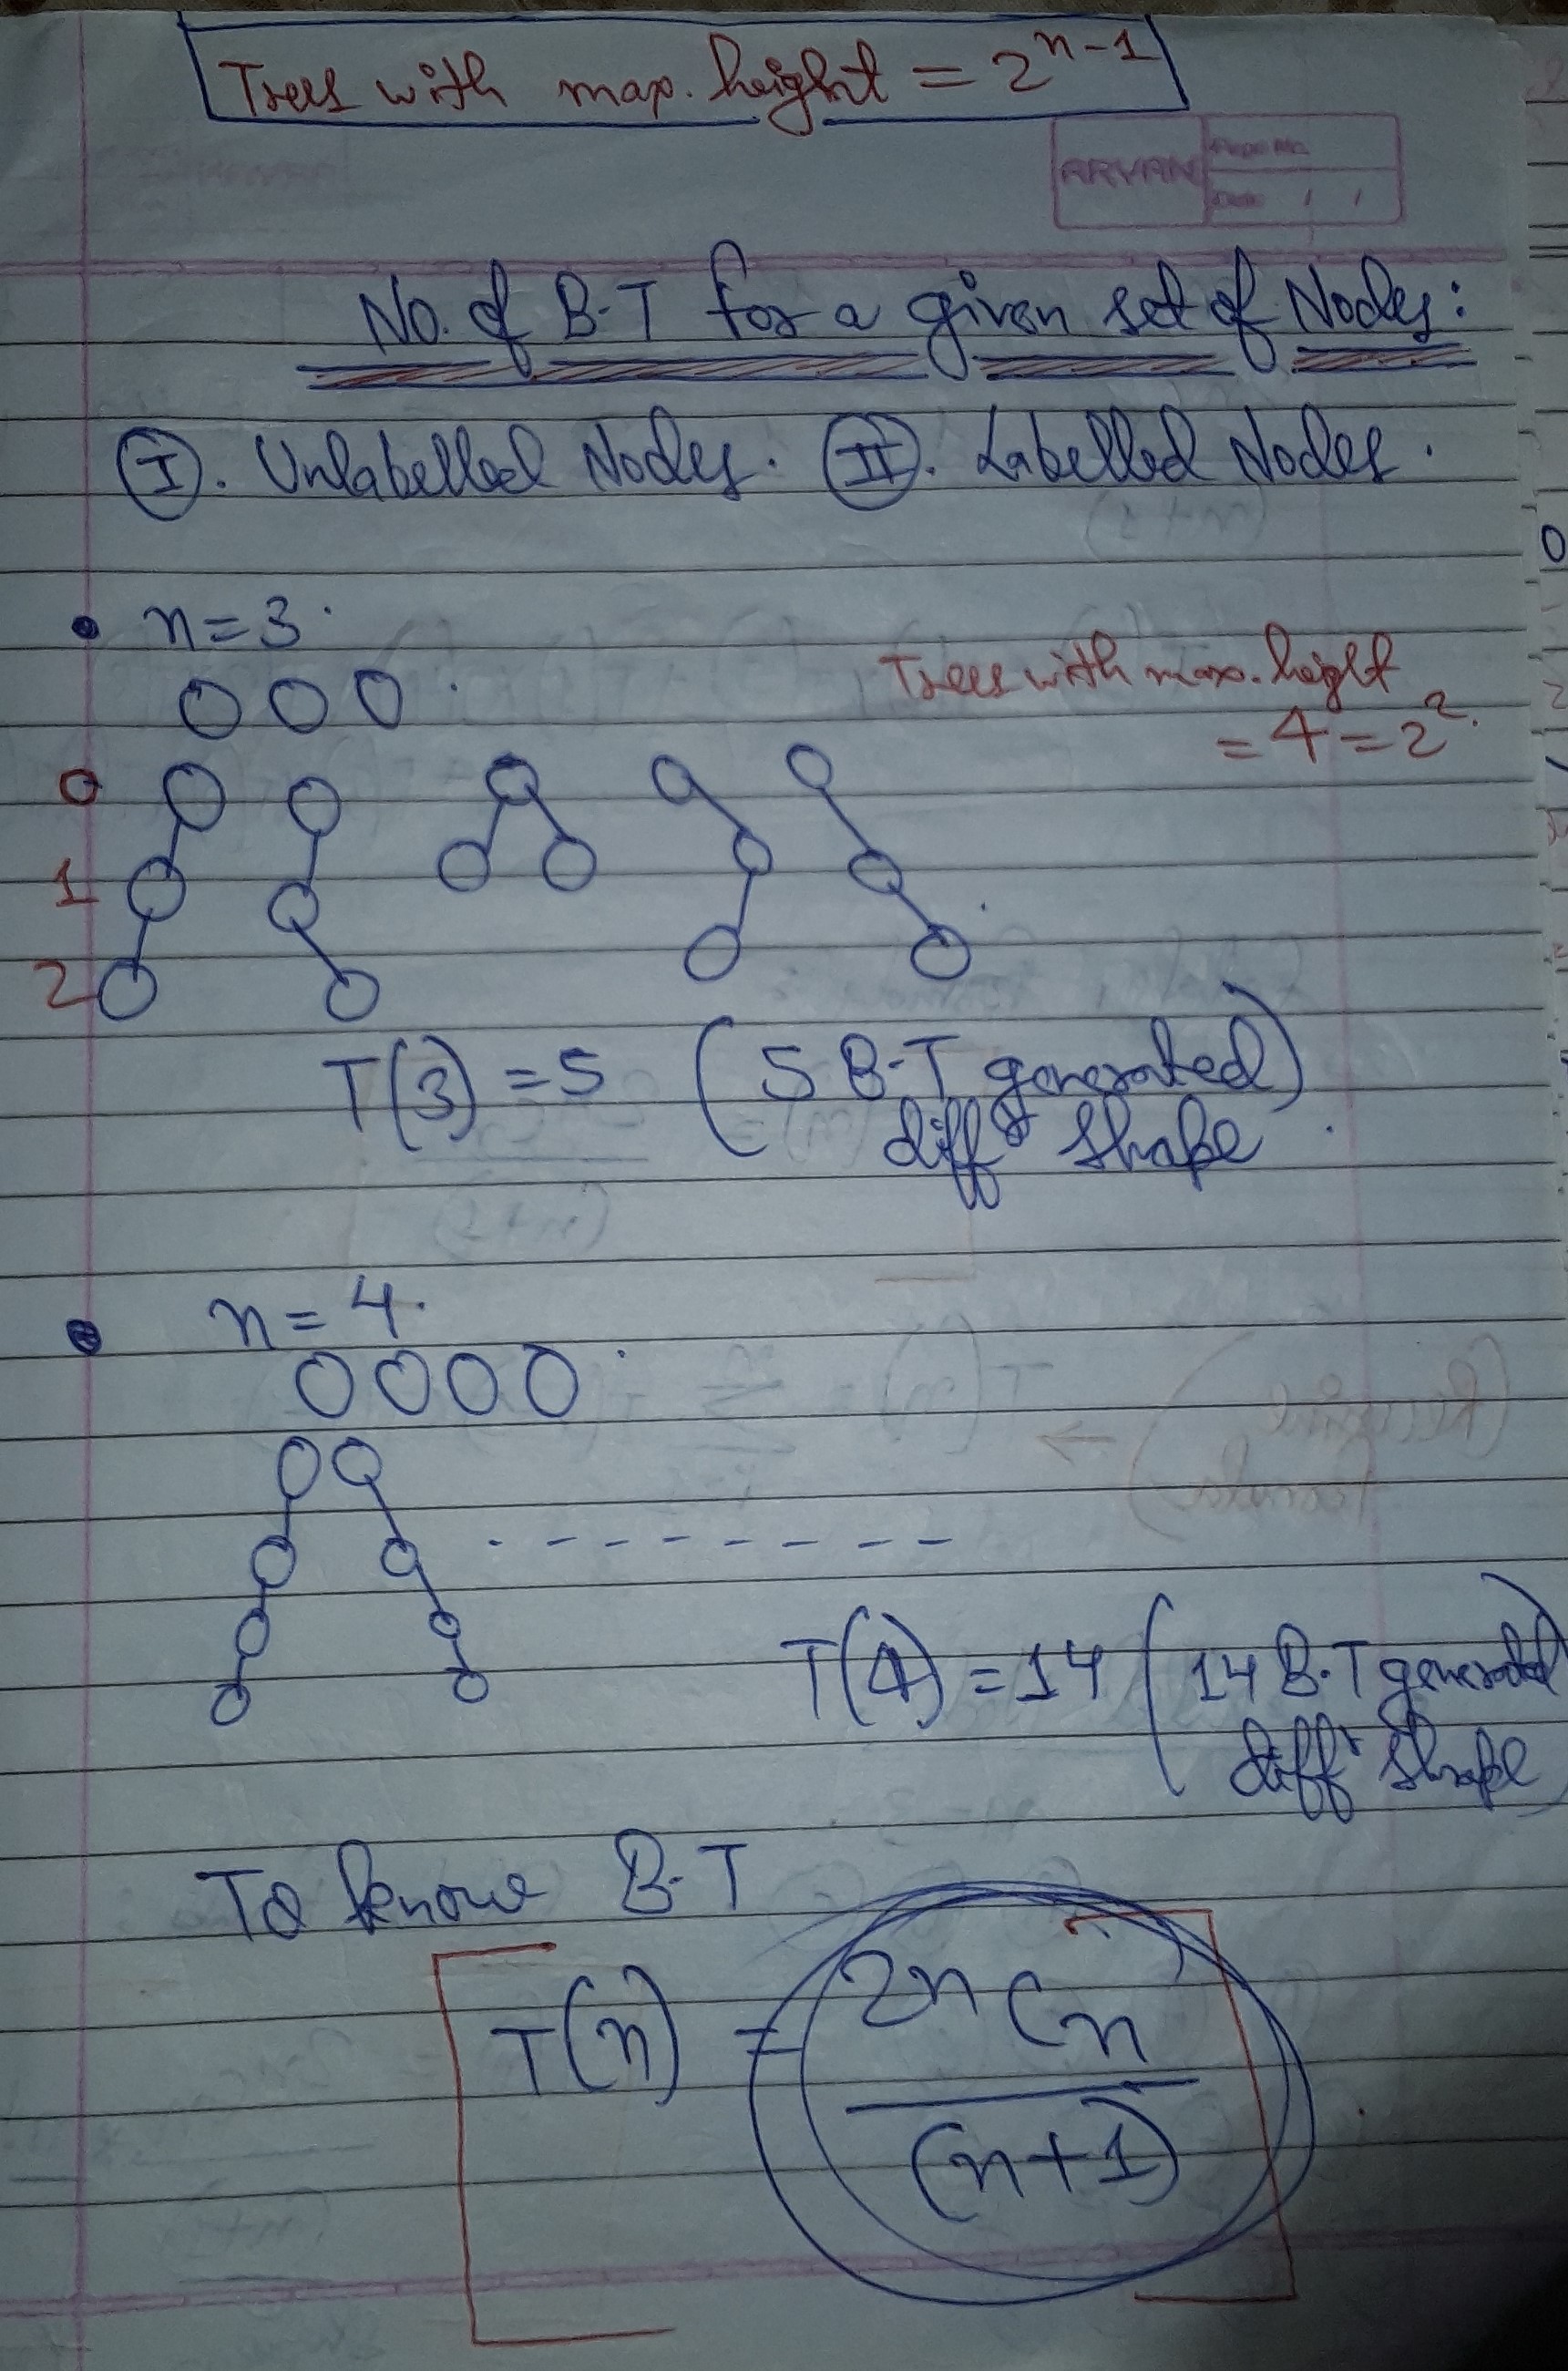 Trees with max. height = 2^{n-1}
ARYAN
Page No.
Date / /
No. of B.T for a given set of Nodes:
I. Unlabelled Nodes. II. Labelled Nodes.
n=3.
Trees with max. height
= 4 = 2^2.
0
1
2
T(3) = 5 (5 B.T generated)
diff^r shape
n = 4.
T(4) = 14 (14 B.T generated)
diff^r shape
To know B.T
T(n) = ^{2n}C_n
(n+1)